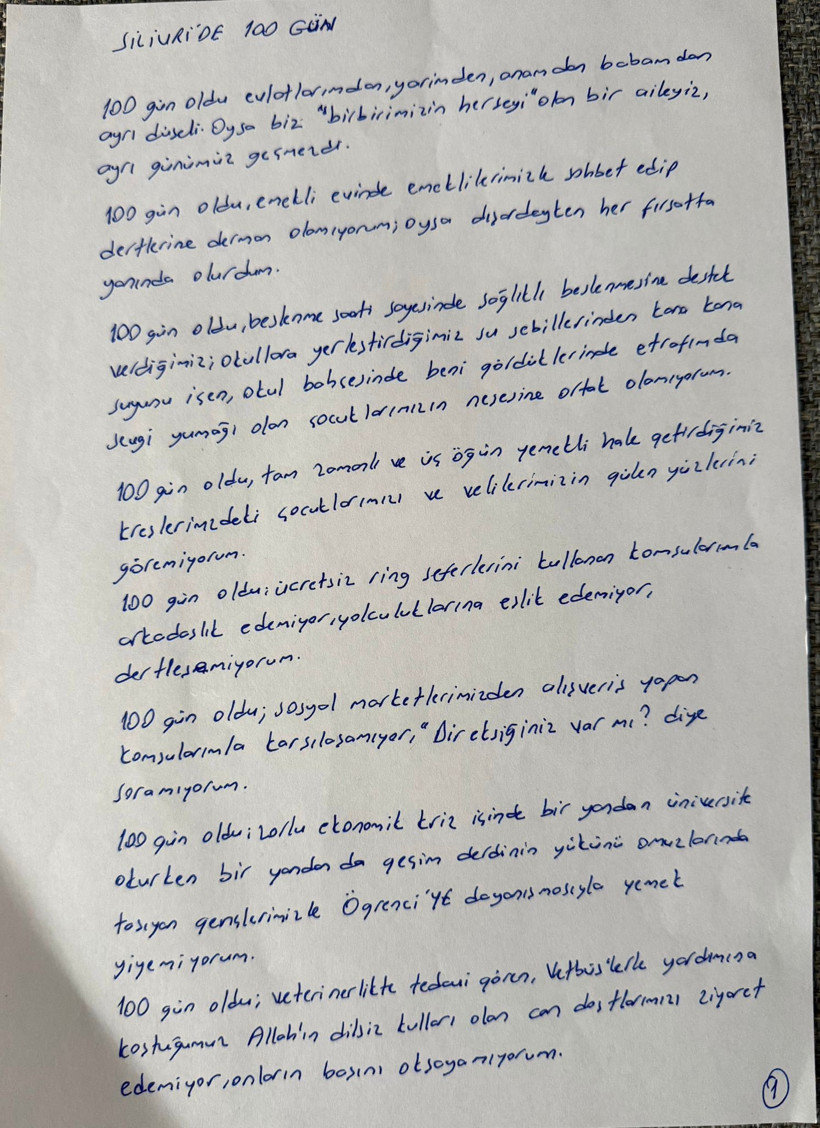 SİLİVRİ'DE 100 GÜN
100 gün oldu evlatlarımdan, yarimden, anamdan babamdan
ayrı düşeli. Oysa biz "birbirimizin herşeyi" olan bir aileyiz,
ayrı günümüz geçmezdi.
100 gün oldu, emekli evinde emeklilerimizle sohbet edip
dertlerine derman olamıyorum; oysa dışardeyken her fırsatta
yanında olurdum.
100 gün oldu, beslenme saati sayesinde sağlıklı beslenmesine destek
verdiğimiz; okullara yerleştirdiğimiz su sebillerinden kana kana
suyunu içen, okul bahçesinde beni gördüklerinde etrafımda
sevgi yumağı olan çocuklarımızın neşesine ortak olamıyorum.
100 gün oldu, tam zamanlı ve üç öğün yemekli hale getirdiğimiz
kreşlerimizdeki çocuklarımızı ve velilerimizin gülen yüzlerini
göremiyorum.
100 gün oldu; ücretsiz ring seferlerini kullanan komşularımla
arkadaşlık edemiyor, yolculuklarına eşlik edemiyor,
dertleşemiyorum.
100 gün oldu; sosyal marketlerimizden alışveriş yapan
komşularımla karşılaşamıyor, "Bir eksiğiniz var mı? diye
soramıyorum.
100 gün oldu; zorlu ekonomik kriz içinde bir yandan üniversite
okurken bir yandan da geçim derdinin yükünü omuzlarında
taşıyan gençlerimizle Öğrenci'YE dayanışmasıyla yemek
yiyemiyorum.
100 gün oldu; veterinerlikte tedavi gören, Vetbüs'lerle yardımına
koştuğumuz Allah'ın dilsiz kulları olan can dostlarımızı ziyaret
edemiyor, onların başını okşayamıyorum.
1